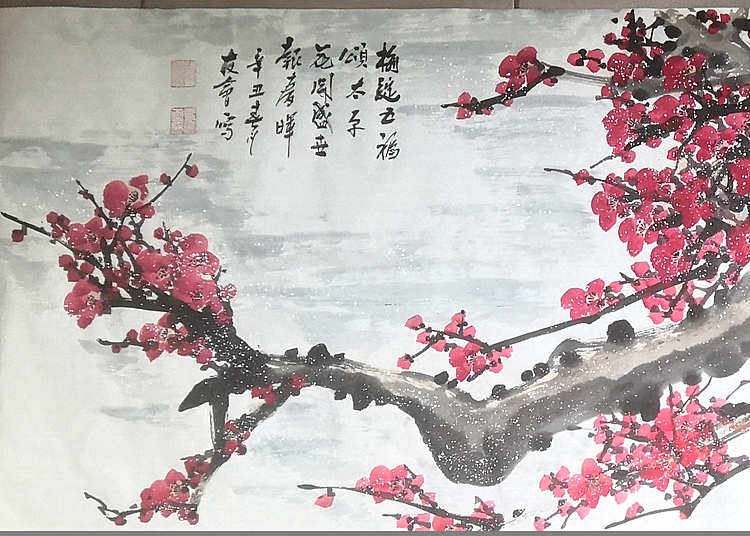 梅綻五福
頌太平
花開盛世
報春暉
辛丑春
友會寫